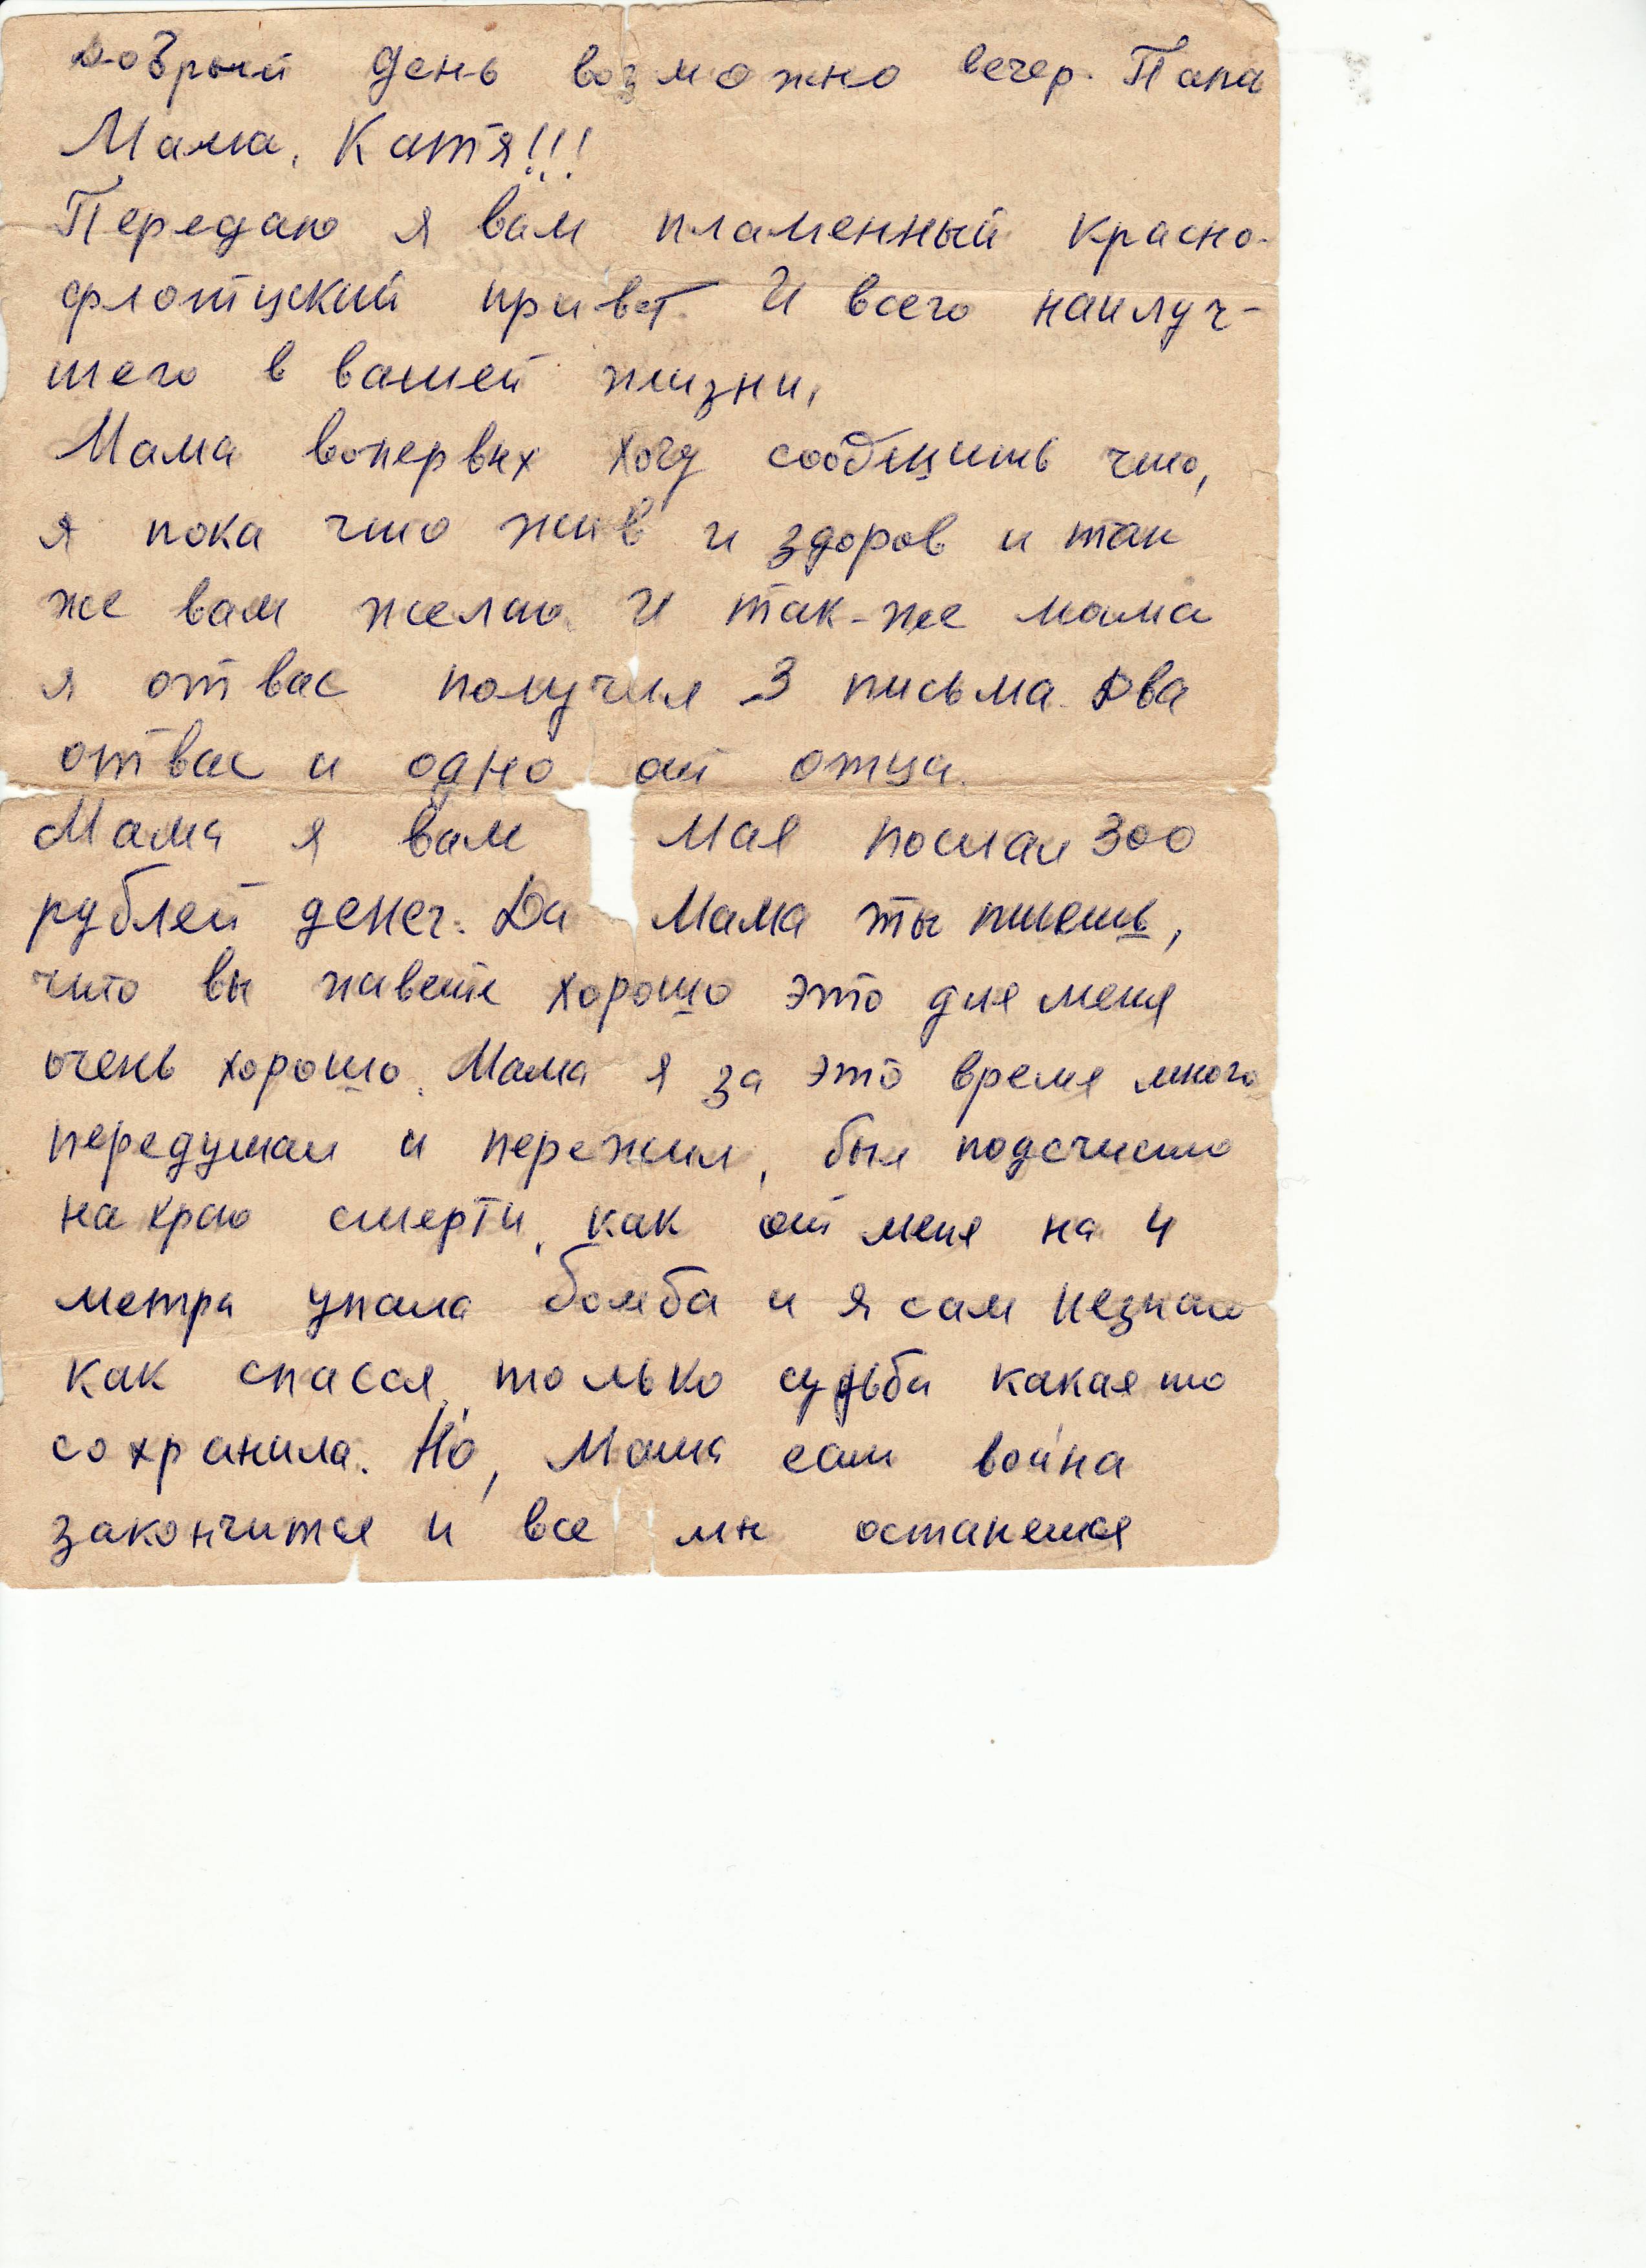 Добрый день возможно вечер. Папа
Мама, Катя!!!
Передаю я вам пламенный красно-
флотцкий привет. И всего наилуч-
шего в вашей жизни,
Мама вопервых хочу сообщить что,
я пока что жив и здоров и так
же вам желаю. И так-же мама
я от вас получил 3 письма. Два
от вас и одно от отца.
Мама я вам мая послал 300
рублей денег. Да Мама ты пишешь,
что вы живете хорошо это для меня
очень хорошо. Мама я за это время много
передумал и пережил, был подсчисто
на краю смерти, как от меня на 4
метра упала бомба и я сам незнаю
как спасся, только судьба какая то
сохранила. Но, Мама если война
закончится и все мы останемся